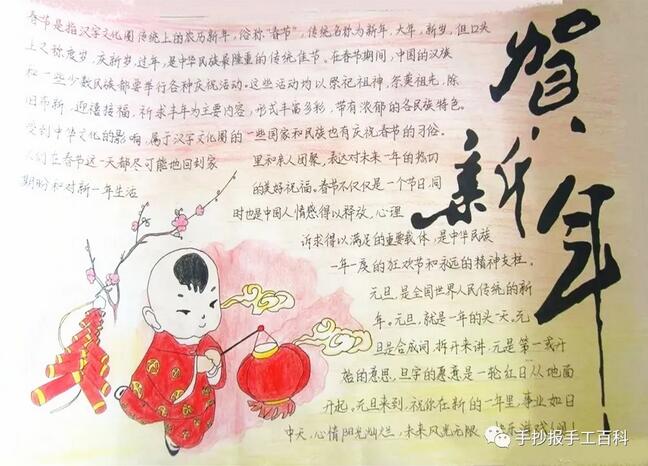 春节是指汉字文化圈传统上的农历新年，俗称"春节"，传统名称为新年、大年、新岁，但口头
上又称度岁、庆新岁、过年，是中华民族最隆重的传统佳节。在春节期间，中国的汉族
和一些少数民族都要举行各种庆祝活动。这些活动均以祭祀祖神、祭奠祖先、除
旧布新、迎禧接福、祈求丰年为主要内容，形式丰富多彩，带有浓郁的各民族特色。
受到中华文化的影响，属于汉字文化圈的一些国家和民族也有庆祝春节的习俗。
人们在春节这一天都尽可能地回到家
里和亲人团聚，表达对未来一年的热切
期盼和对新一年生活
的美好祝福。春节不仅仅是一个节日，同
时也是中国人情感得以释放、心理
诉求得以满足的重要载体，是中华民族
一年一度的狂欢节和永远的精神支柱。
元旦，是全国世界人民传统的新
年。元旦，就是一年的头一天。元
旦是合成词，拆开来讲，元是第一或开
始的意思，旦字的愿意是一轮红日从地面
升起。元旦来到，祝你在新的一年里，事业如日
中天，心情阳光灿烂，未来风光无限
贺新年
手抄报手工百科